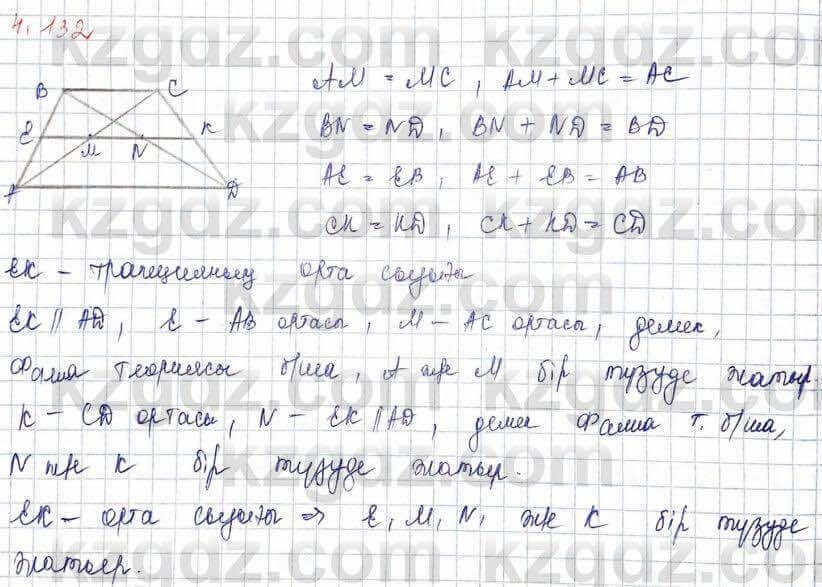 4.132
B C
AM = MC, AM + MC = AC
E M N K
BN = ND, BN + ND = BD
A D
AE = EB, AE + EB = AB
CK = KD, CK + KD = CD
EK - трапецияның орта сызығы
EK || AD, E - AB ортасы, M - AC ортасы, демек,
Фалеса теориясы б/ша, A және M бір түзуде жатыр.
K - CD ортасы, N - EK || AD, демек Фалеса т. б/ша,
N және K бір түзуде жатыр.
EK - орта сызығы => E, M, N, және K бір түзуде
жатыр.
kzgdz.com